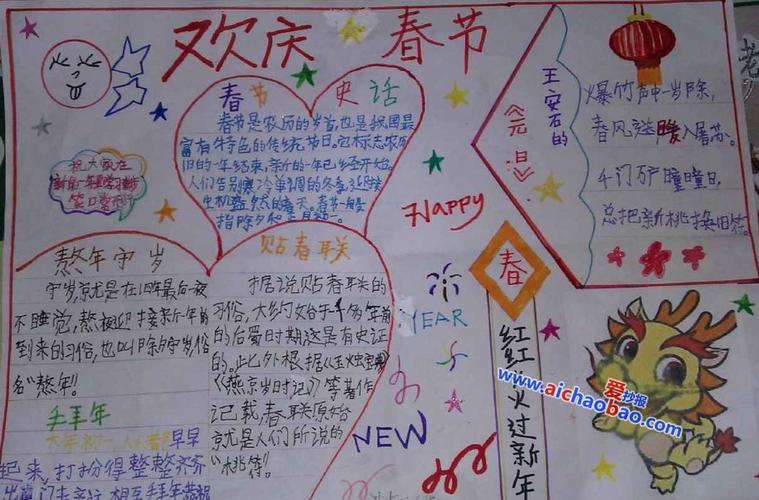 欢庆 春节
春节 史话
春节是农历的岁首,也是我国最
富有特色的传统节日。它标志农历
旧的一年结束,新的一年已经开始。
人们告别寒冷单调的冬季,迎接
生机盎然的春天。春节一般
指除夕和
祝大家在
新的一年里学习进步
笑口常开
王安石的
《元日》
爆竹声中一岁除,
春风送暖入屠苏。
千门万户曈曈日,
总把新桃换旧符。
熬年守岁
守岁,就是在旧年最后一夜
不睡觉,熬夜迎接新一年的
到来的习俗,也叫除夕守岁,俗
名“熬年”!
拜年
大年初一,人们都早早
起来,打扮得整整齐齐
出门去
贴春联
据说贴春联的
习俗,大约始于一千多年前
的后蜀时期,这是有史证
的。此外根据《玉烛宝典》
《燕京岁时记》等著作
记载,春联原始
就是人们所说的
“桃符”!
Happy
YEAR
NEW
春
红红火火过新年
爱抄报
www.aichaobao.com